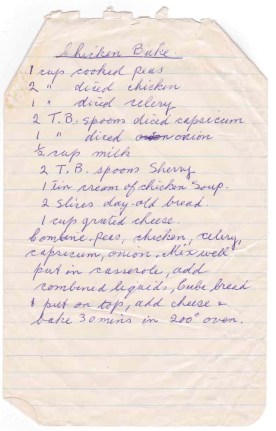 Chicken Bake.
1 cup cooked peas
2 " diced chicken
1 " diced celery
2 T.B. spoons diced capsicum
1 " diced onion
½ cup milk
2 T.B. spoons Sherry
1 Tin cream of chicken Soup.
2 slices day-old bread.
1 cup grated cheese.
Combine peas, chicken, celery,
capsicum, onion. "Mix well"
put in casserole, add
combined liquids, Cube bread
& put on top, add cheese &
bake 30 mins in 200° oven.